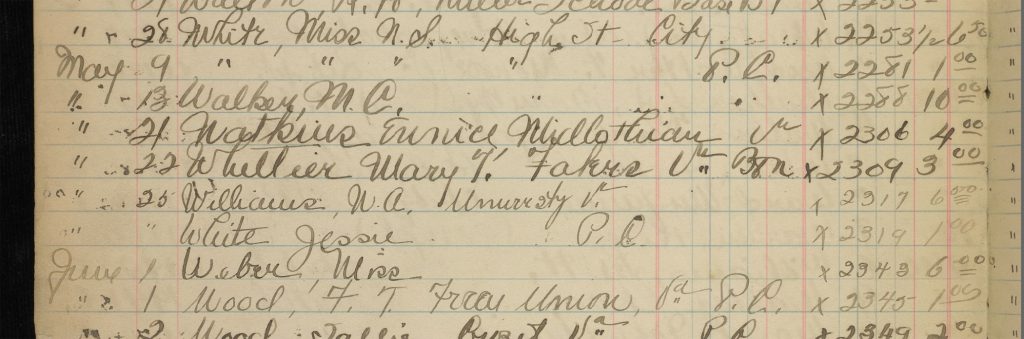 " " 28 White, Miss N.S. High St City x 2253½ 6 50
May 9 " " " " P.C. x 2281 1 00
" 13 Walker, M.C. " " x 2288 10 00
" 21 Watkins Eunice Midlothian Va x 2306 4 00
" 22 Whittier Mary T. Fakers Va Bon x 2309 3 00
" 25 Williams, W.A. University Va x 2317 6 00
" White Jessie P.C. x 2319 1 00
June 1 Weber, Miss x 2343 6 00
" 1 Wood, F. T. Free Union, Va P.C. x 2345 1 00
" 2 Wood Va x 2349 2 00